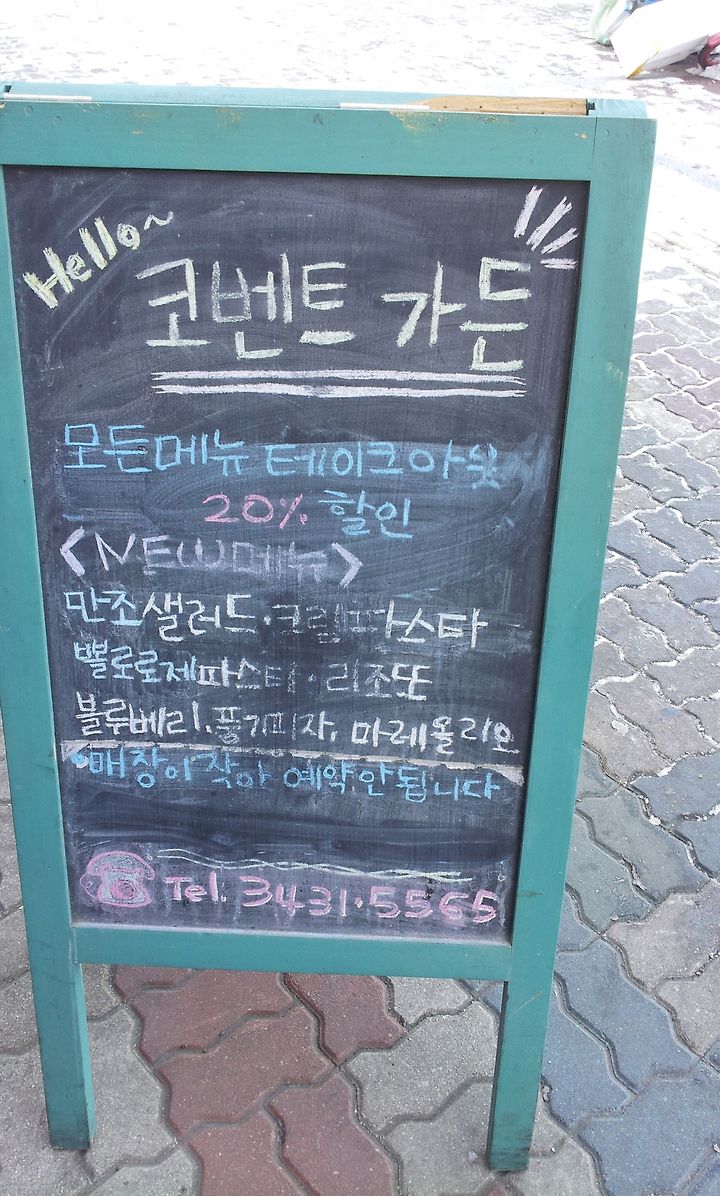 Hello~
코벤트 가든
모든메뉴 테이크아웃
20% 할인
<NEW메뉴>
만조샐러드·크림파스타
뽈로로제파스타·리조또
블루베리,풍기피자, 마레올리오
•매장이작아 예약안됩니다
Tel. 3431·5565